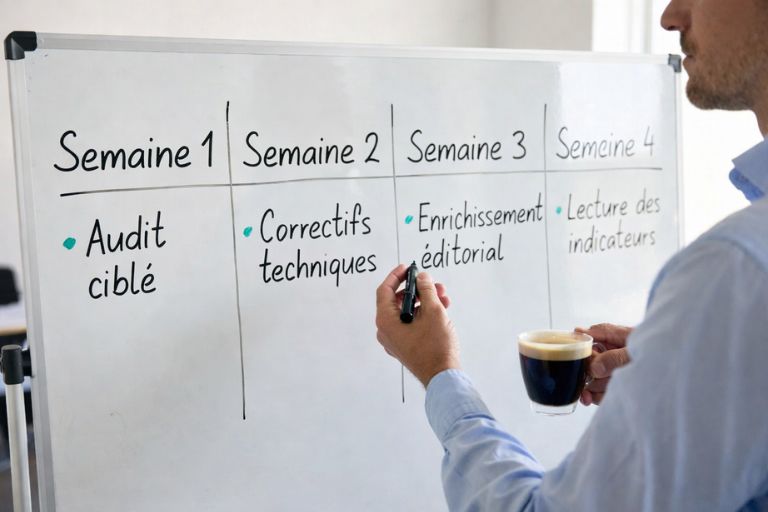 Semaine 1
Semaine 2
Semaine 3
Semeine 4
Audit
ciblé
Correctifs
techniques
Enrichissement
éditorial
Lecture des
indicateurs